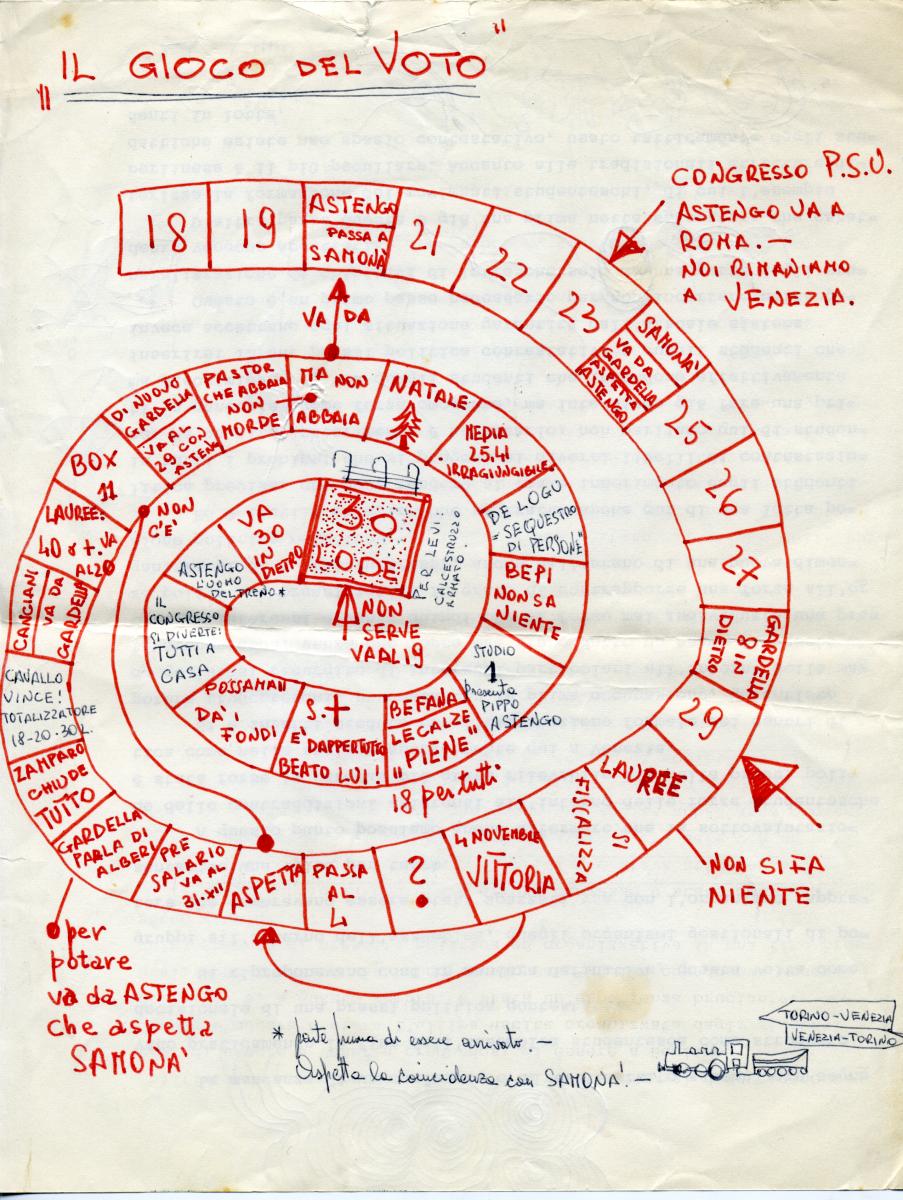 "IL GIOCO DEL VOTO"
CONGRESSO P.S.U.
ASTENGO VA A
ROMA. —
NOI RIMANIAMO
A VENEZIA.
18
19
ASTENGO
PASSA A
SAMONÀ
21
22
23
SAMONA'
VA DA
GARDELLA
ASPETTA
ASTENGO
25
26
27
GARDELLA
8 IN
DIETRO
29
LAUREE
SI
FISCALIZZA
NON SI FA
NIENTE
4 NOVEMBRE
VITTORIA
2
PASSA
AL
4
ASPETTA
PRE
SALARIO
VA AL
31-XII
GARDELLA
PARLA DI
ALBERI
per
potare
va da ASTENGO
che aspetta
SAMONA'
ZAMPARO
CHIUDE
TUTTO
CAVALLO
VINCE!
TOTALIZZATORE
18-20-30 L.
CANCIANI
VA DA
GARDELLA
LAUREE:
40 o +. VA
AL 20
BOX
11
NON
C'E'
DI NUOVO
GARDELLA
VA AL
29 CON
ASTEN
PASTOR
CHE ABBAIA
NON
MORDE
MA NON
ABBAIA
VA DA
NATALE
MEDIA
25.4
IRRAGIUNGIBILE
DE LOGU
"SEQUESTRO
DI PERSONE"
BEPI
NON SA
NIENTE
STUDIO
1
Presenta
PIPPO
ASTENGO
BEFANA
LE CALZE
"PIENE"
18 per tutti
S. +
E' DAPPERTUTTO
BEATO LUI!
POSSAMAI
DA'I
FONDI
IL
CONGRESSO
SI DIVERTE:
TUTTI A
CASA
ASTENGO
L'UOMO
DEL TRENO *
VA
30
IN
DIETRO
30
LODE
PER LEVI
CALCESTRUZZO
ARMATO
NON
SERVE
VA AL 19
* parte prima di essere arrivato. —
Aspetta la coincidenza con SAMONA' —
TORINO-VENEZIA
VENEZIA-TORINO